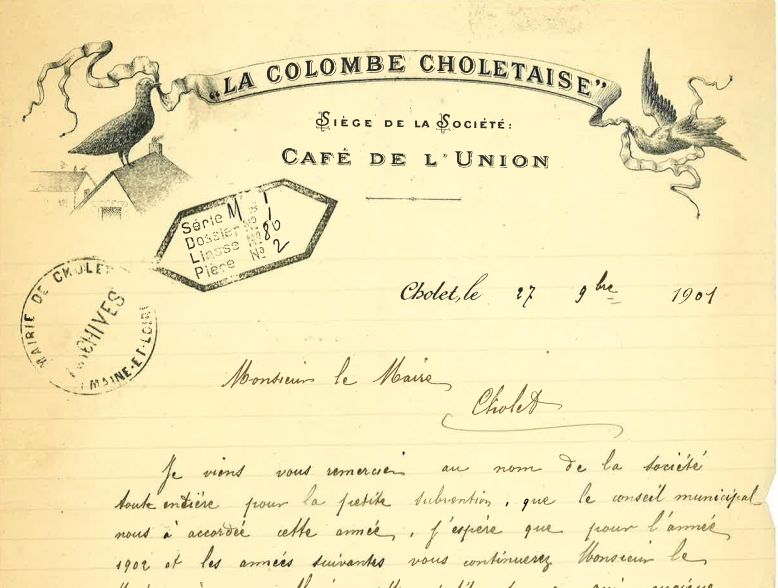 "LA COLOMBE CHOLETAISE"
SIÈGE DE LA SOCIÉTÉ:
CAFÉ DE L'UNION
Série M 1
Dossier No 1
Liasse No 86
Pièce No 2
MAIRIE DE CHOLET
ARCHIVES
MAINE-ET-LOIRE
Cholet, le 27 9bre 1901
Monsieur le Maire
Cholet
Je viens vous remercier au nom de la société
toute entière pour la petite subvention, que le conseil municipal
nous à accordée cette année, j'espère que pour l'année
1902 et les années suivantes vous continuerez Monsieur le